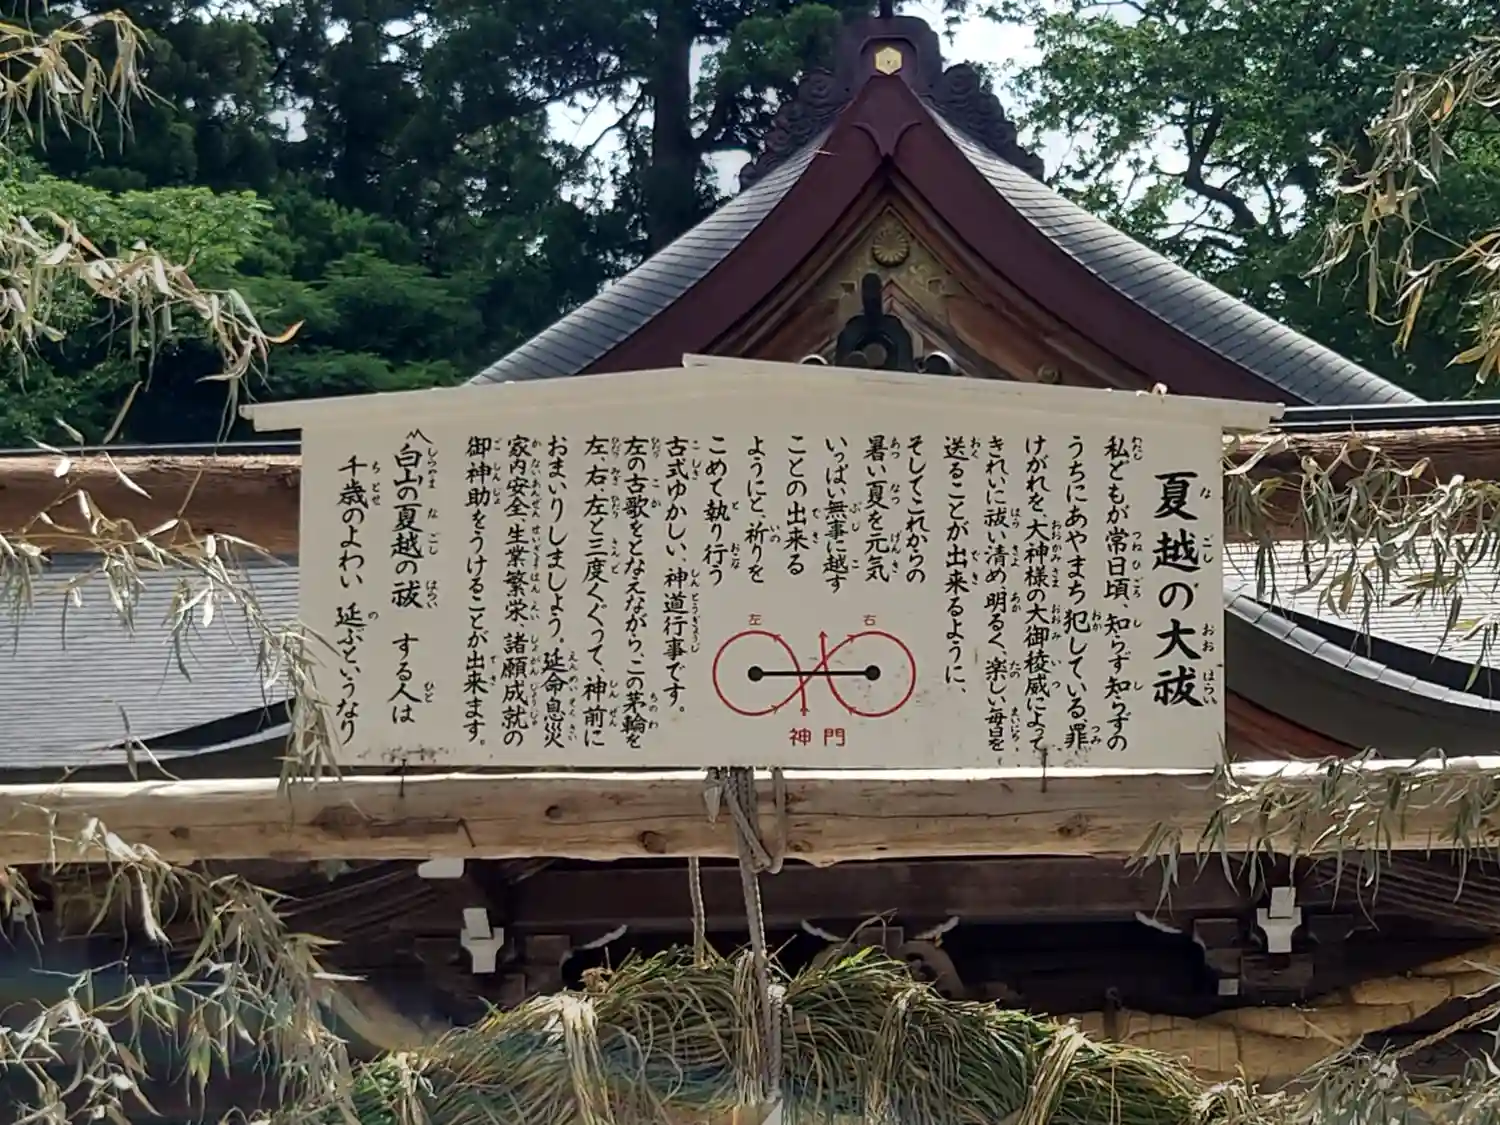 夏越の大祓
私どもが常日頃、知らず知らずの
うちにあやまち犯している、罪
けがれを、大神様の大御稜威によって
きれいに祓い清め、明るく、楽しい毎日を
送ることが出来るように、
そしてこれからの
暑い夏を元気
いっぱい無事に越す
ことの出来る
ようにと、祈りを
こめて執り行う
古式ゆかしい、神道行事です。
左の古歌をとなえながら、この茅輪を
左、右、左と三度くぐって、神前に
おまいりしましよう。延命息災
家内安全、生業繁栄、諸願成就の
御神助をうけることが出来ます。
白山の夏越の祓 する人は
千歳のよわい 延ぶというなり
左
右
神門